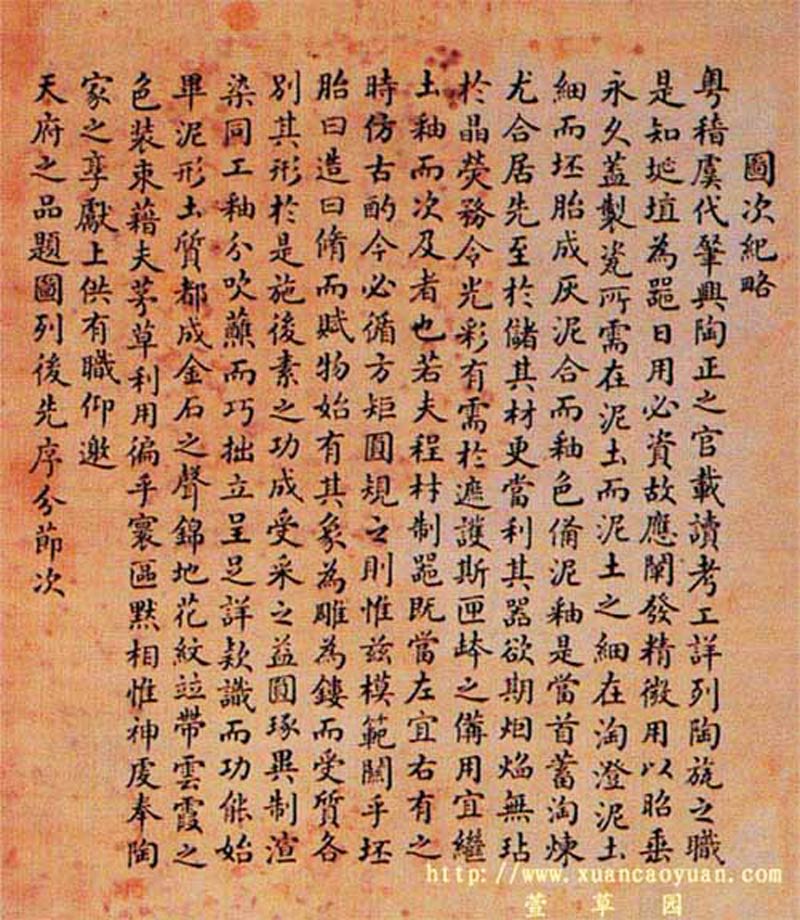 圖次紀略
粵稽虞代肇興陶正之官載讀考工詳列陶旊之職
是知埏埴為噐日用必資故應闡發精微用以昭垂
永久蓋製瓷所需在泥土而泥土之細在淘澄泥土
細而坯胎成灰泥合而釉色備泥釉是當首蓄淘煉
尤合居先至於儲其材更當利其器欲期烟焰無玷
於晶熒務令光彩有需於遮護斯匣鉢之備用宜繼
土釉而次及者也若夫程材制噐既當左宜右有之
時仿古酌今必循方矩圓規之則惟兹模範關乎坯
胎曰造曰脩而賦物始有其象為雕為鏤而受質各
別其形於是施後素之功成受采之益圓琢異制渲
染同工釉分吹蘸而巧拙立呈足詳欵識而功能始
畢泥形土質都成金石之聲錦地花紋竝帶雲霞之
色裝束藉夫茅草利用徧乎寰區黙相惟神虔奉陶
家之享獻上供有職仰邀
天府之品題圖列後先序分節次
http://www.xuancaoyuan.com
萱草园